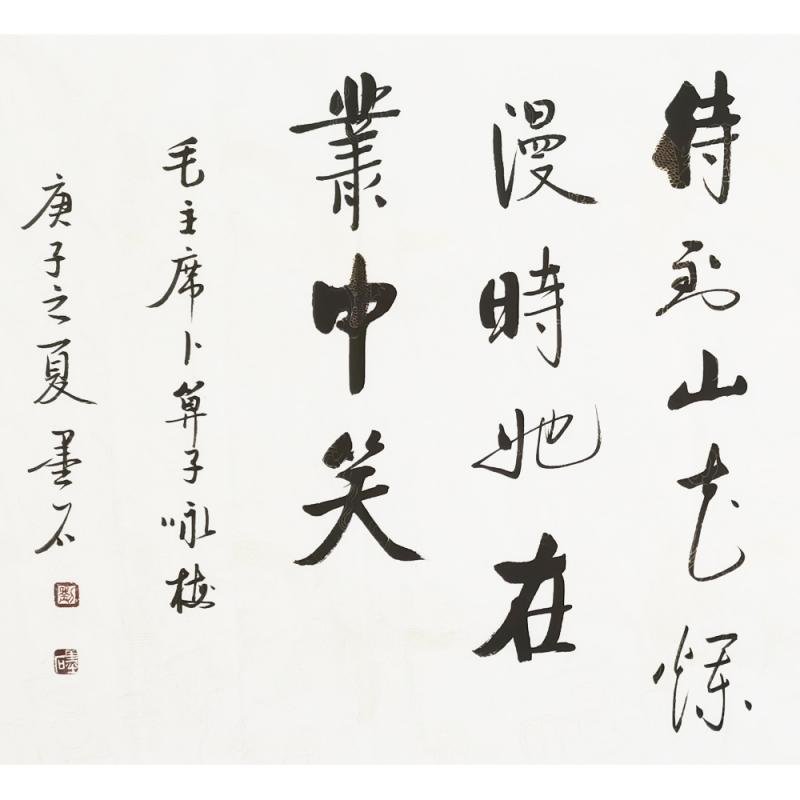 待到山花爛
漫時她在
叢中笑
毛主席卜算子咏梅
庚子之夏墨石
劉